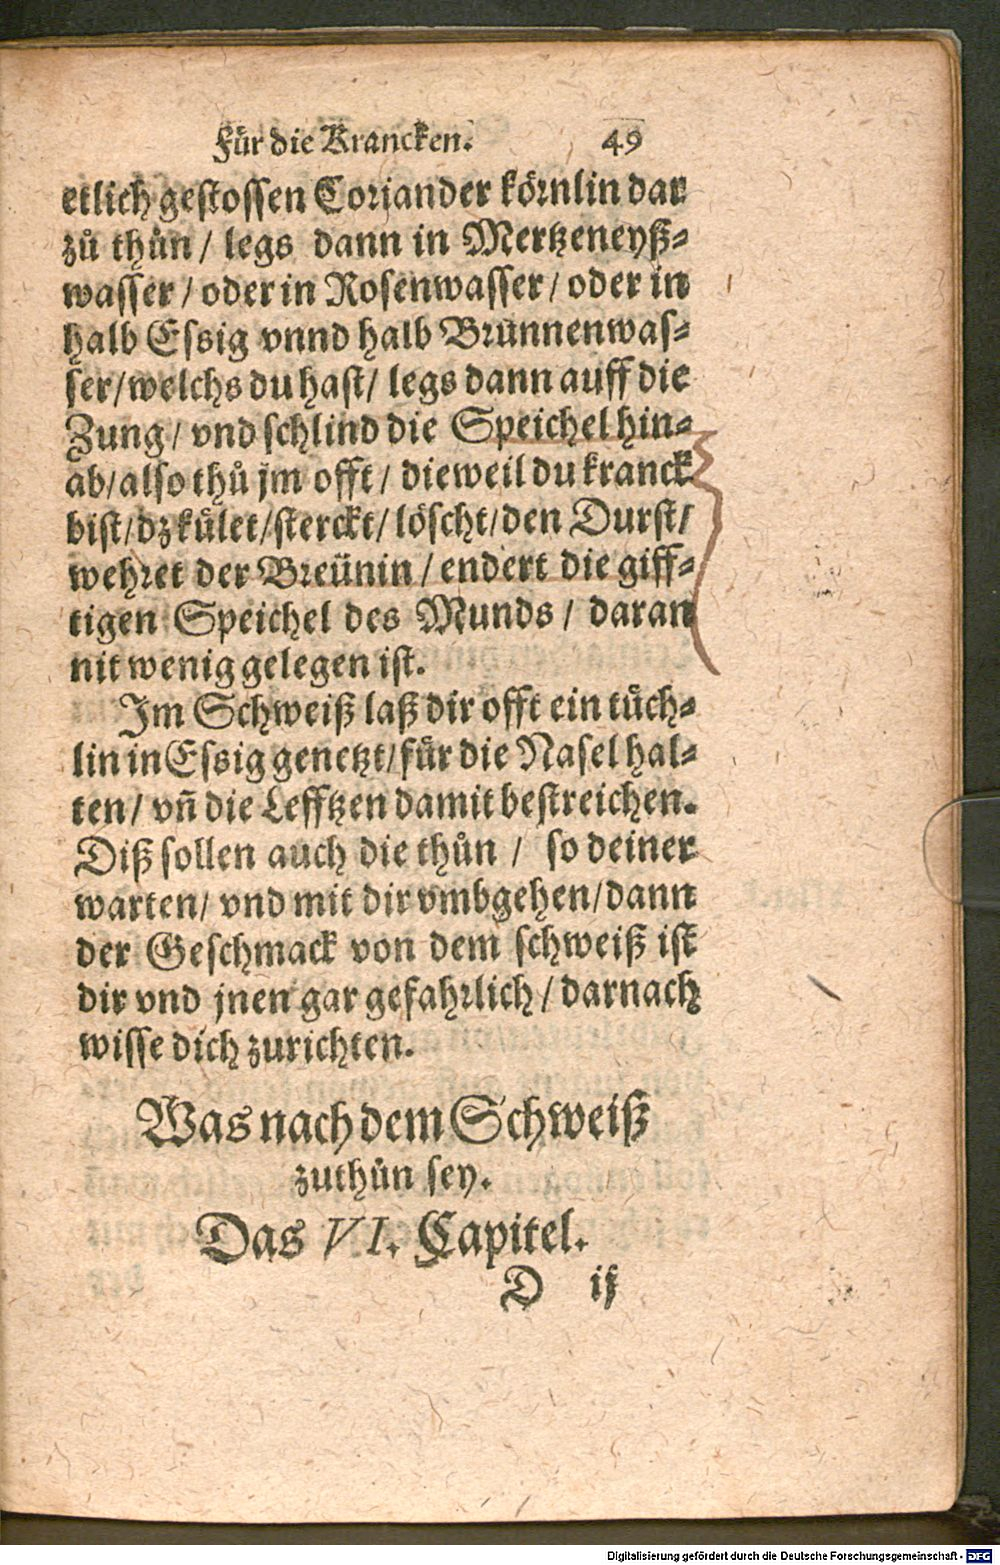 Für die Krancken. 49
etlich gestossen Coriander körnlin dar
zů thůn / legs dann in Mertzeneyß⸗
wasser / oder in Rosenwasser / oder in
halb Essig vnnd halb Brunnenwas⸗
ser / welchs du hast / legs dann auff die
Zung / vnd schlind die Speichel hin⸗
ab / also thů jm offt / dieweil du kranck
bist / dz kůlet / sterckt / löscht / den Durst /
wehret der Breünin / endert die giff⸗
tigen Speichel des Munds / daran
nit wenig gelegen ist.
Im Schweiß laß dir offt ein tůch⸗
lin in Essig genetzt / für die Nasel hal⸗
ten / vñ die Lefftzen damit bestreichen.
Diß sollen auch die thůn / so deiner
warten / vnd mit dir vmbgehen / dann
der Geschmack von dem schweiß ist
dir vnd jnen gar gefahrlich / darnach
wisse dich zurichten.
Was nach dem Schweiß
zuthůn sey.
Das VI. Capitel.
D ij
Digitalisierung gefördert durch die Deutsche Forschungsgemeinschaft - DFG